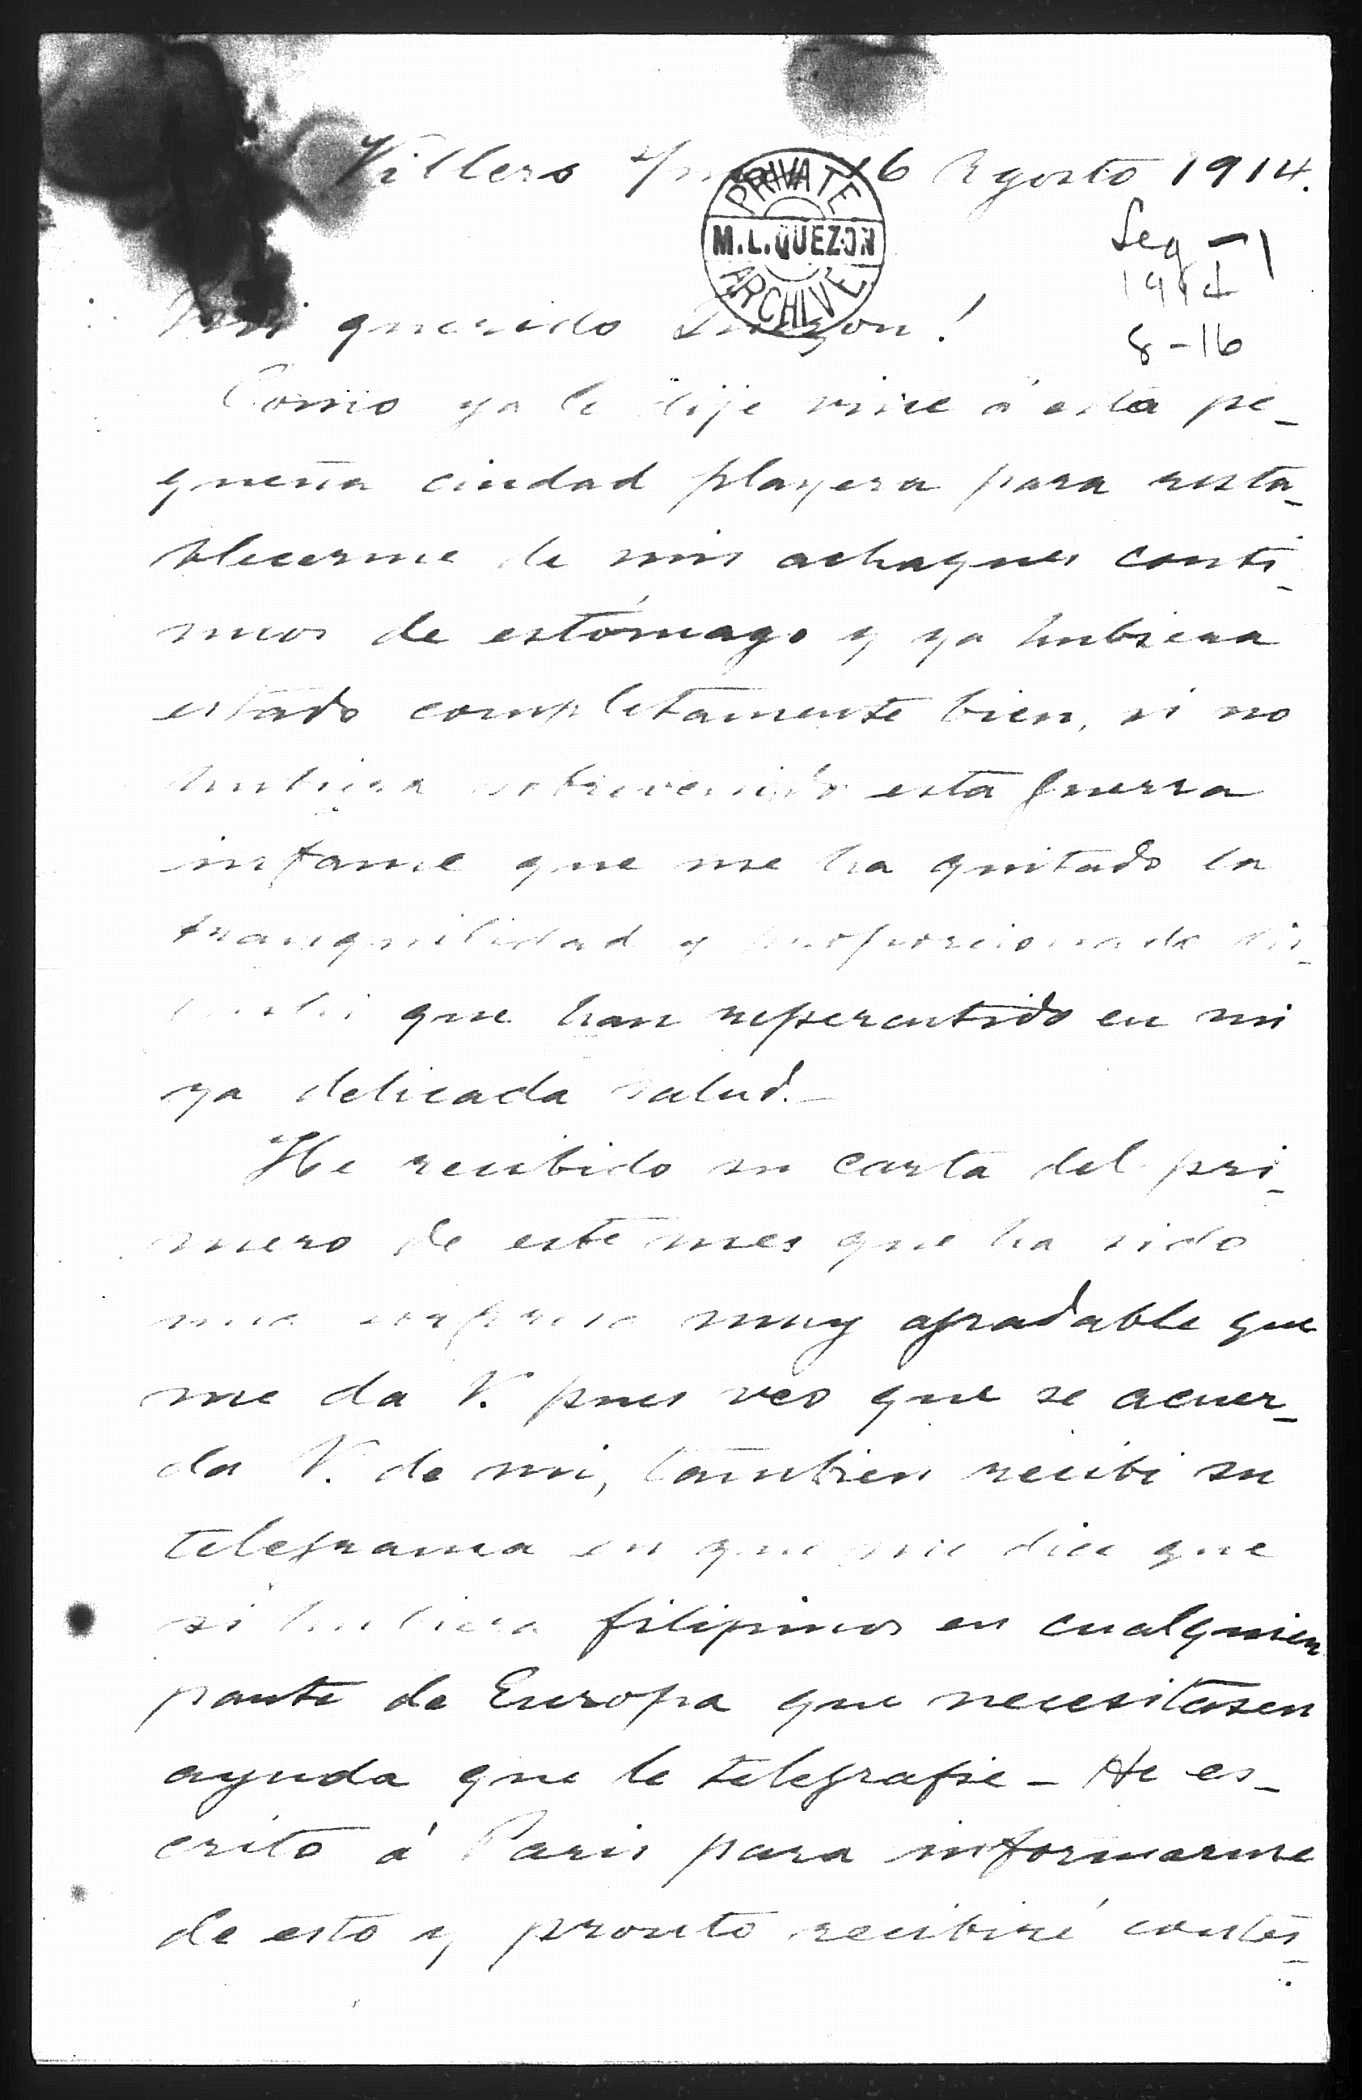 Villers s/mer 16 Agosto 1914.
PRIVATE
M.L.QUEZON
ARCHIVE
Seq-1
1914
8-16
Mi querido Quezon!
Como ya le dije vine á esta pe-
queña ciudad playera para resta-
blecerme de mis achaques conti-
nuos de estómago y ya hubiera
estado completamente bien, si no
hubiera sobrevenido esta guerra
infame que me ha quitado la
tranquilidad y proporcionado dis-
que han repercutido en mi
ya delicada salud.—
He recibido su carta del pri-
mero de este mes que ha sido
una sorpresa muy agradable que
me da V. pues veo que se acuer-
da V. de mi, tambien recibi su
telegrama en que me dice que
si hubiera filipinos en cualquier
parte de Europa que necesitasen
ayuda que le telegrafie – He es-
crito á Paris para informarme
de esto y pronto recibiré contes-